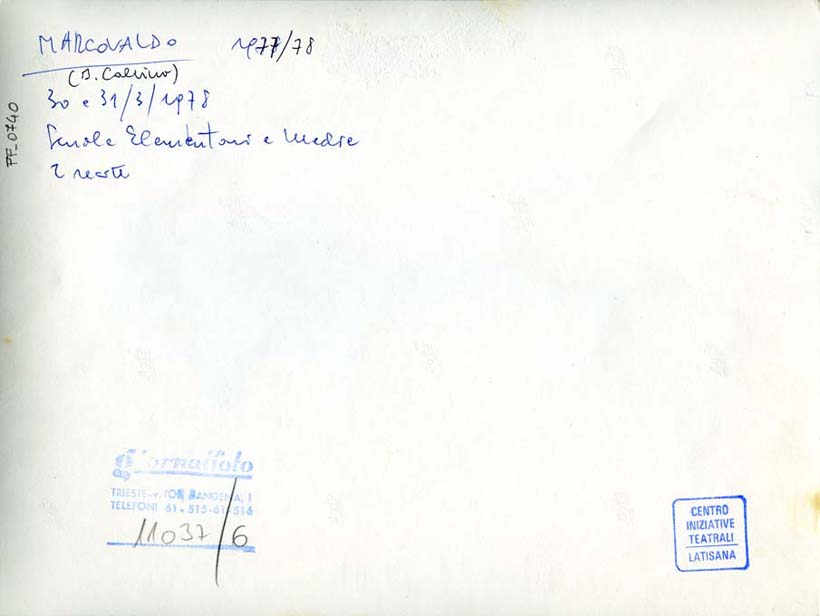 MARCOVALDO 1977/78
(I. Calvino)
30 e 31/3/1978
Scuole Elementari e Medie
2 recite
PF_0740
giornalfoto
TRIESTE - v. TOR BANDENA, 1
TELEFONI 61-515-61-516
11037/6
CENTRO
INIZIATIVE
TEATRALI
LATISANA